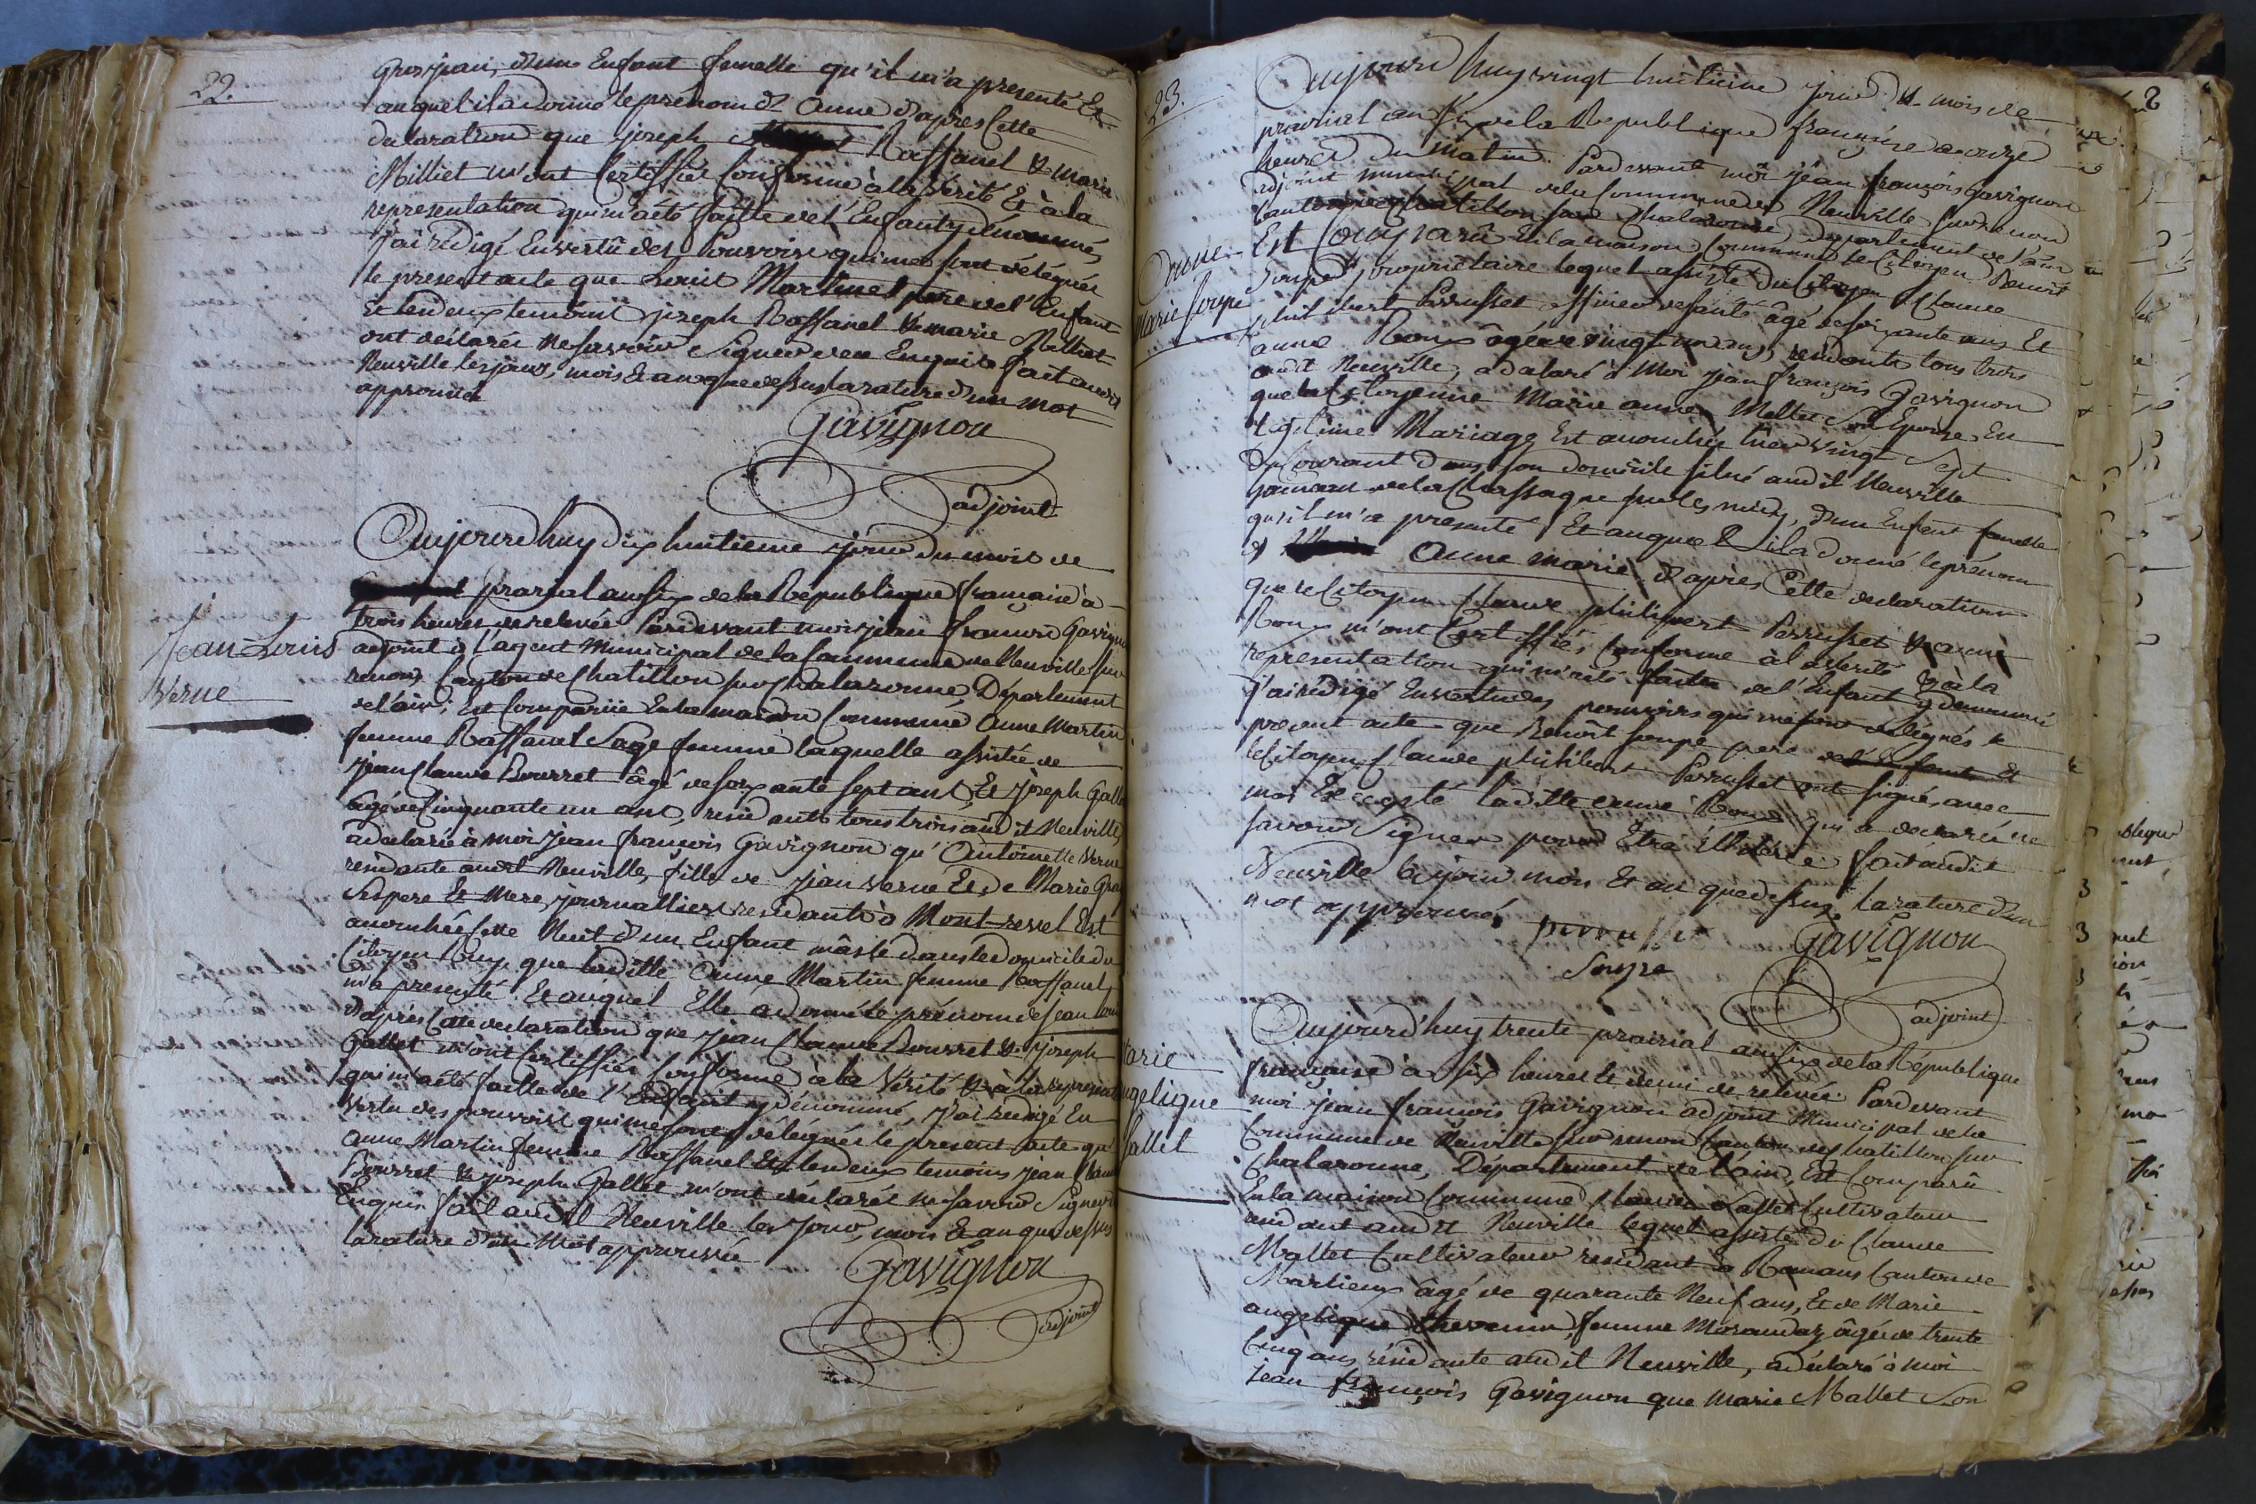 22.
Grosjean, d'un Enfant femelle qu'il m'a presenté Et
auquel il a donné le prénom d'Anne d'apres Cette
declaration que joseph Raffanel & marie
Milliet m'ont Certiffiés Conforme à la vérité Et à la
representation qui m'a été faitte de l'Enfant y dénommé,
j'ai rédigé En vertû des Pouvoirs qui me sont délégués
le present acte que Louis Martinet pere de l'Enfant
Et les deux temoins joseph Raffanel & marie Milliet
ont déclarés ne savoir Signer de ce Enquis fait audit
Neuville les jour, mois & an que dessus la rature d'un mot
approuvée
Gavignon
adjoint
Jean Louis
Verne
Aujourd'huy dix huitieme jour du mois de
prairial an six de la République française à
trois heures de relevée Pardevant moi jean françois Gavignon
adjoint à l'agent Municipal de la Commune de Neuville sur
renon, Canton de Chatillon sur Chalaronne Département
de l'ain; Est Comparüe En la maison Commune Anne Martin
femme Raffanel Sage femme laquelle assistée de
jean Claude Bourret âgé de soixante sept ans, Et joseph Gallet
âgé de Cinquante un ans, résidants tous trois audit Neuville,
a déclaré à moi jean françois Gavignon qu'Antoinette Verne
residante audit Neuville, fille de jean Verne Et de Marie Gra
Ses pere Et Mere, journalliers residants à Mont-revel Est
accouchée Cette Nuit d'un Enfant mâsle dans le domicile du
Citoyen que laditte Anne Martin femme Raffanel
m'a presenté Et auquel Elle a donné le prénom de Jean Louis
d'après Cette declaration que jean Claude Bourret & joseph
Gallet m'ont Certiffiés Conforme à la Vérité & à la representation
qui m'a été faitte de l'Enfant y dénommé, j'ai redigé En
Vertu des pouvoirs qui me sont délégués le present acte qu'
anne Martin femme Raffanel Et les deux temoins jean Claude
Bourret & joseph Gallet m'ont déclarés ne savoir Signer
Enquis fait audit Neuville les Jour, mois Et an que dessus
la rature d'un Mot approuvée
Gavignon
adjoint
23.
Anne
Marie Soupe
Aujourd'huy vingt huitieme jour du mois de
prairial an six de la Republique française a onze
heures du matin. Pardevant moi jean françois Gavignon
adjoint municipal de la Commune de Neuville sur renon
Canton de Chatillon sur Chalaronne, département de l'ain
Est Comparû En la maison Commune le Citoyen Benoit
Soupe propriétaire lequel assisté du Citoyen Claude
philibert Perrusset officier de santé âgé de soixante ans Et
anne Roux âgée de vingt un ans, residants tous trois
audit Neuville, a déclaré à Moi jean françois Gavignon
que la Citoyenne Marie anne Mellet Son Epouse En
Legitime Mariage Est accouchée hier vingt Sept
du Courant dans son domicile situé audit Neuville
hameau de la Chassagne sur les midy, d'un Enfant femelle
qu'il m'a presenté Et auquel il a donné le prénom
d' Anne marie d'après Cette declaration
que le Citoyen Claude philibert Perrusset & anne
Roux m'ont Certiffiés Conforme à la vérité & à la
representation qui m'a été faitte de l'Enfant y denommé
j'ai rédigé En vertu des pouvoirs qui me sont délégués le
present acte que Benoît soupe pere de l'Enfant Et
le Citoyen Claude philibert Perrusset ont signés avec
moi Excepté laditte anne Roux qui a declaré ne
savoir Signer pour Etre illitérée fait audit
Neuville les jour mois Et an que dessus, la rature d'un
mot approuvée,
perrusset
Soupe
Gavignon
adjoint
Marie
Angelique
Callet
Aujourd'huy trente prairial an six de la République
française à six heures & demi de relevée Pardevant
moi jean françois Gavignon adjoint Municipal de la
Commune de Neuville sur renon Canton de Chatillon sur
Chalaronne, Département de l'ain, Est Comparû
En la maison Commune Claude Callet Cultivateur
résidant audit Neuville lequel assisté de Claude
Mallet Cultivateur residant à Romans Canton de
Marlieux âgé de quarante Neuf ans, Et de Marie
angelique thevenin, femme Morandaz âgée de trente
Cinq ans résidante audit Neuville, a déclaré à moi
jean françois Gavignon que Marie Mallet Son